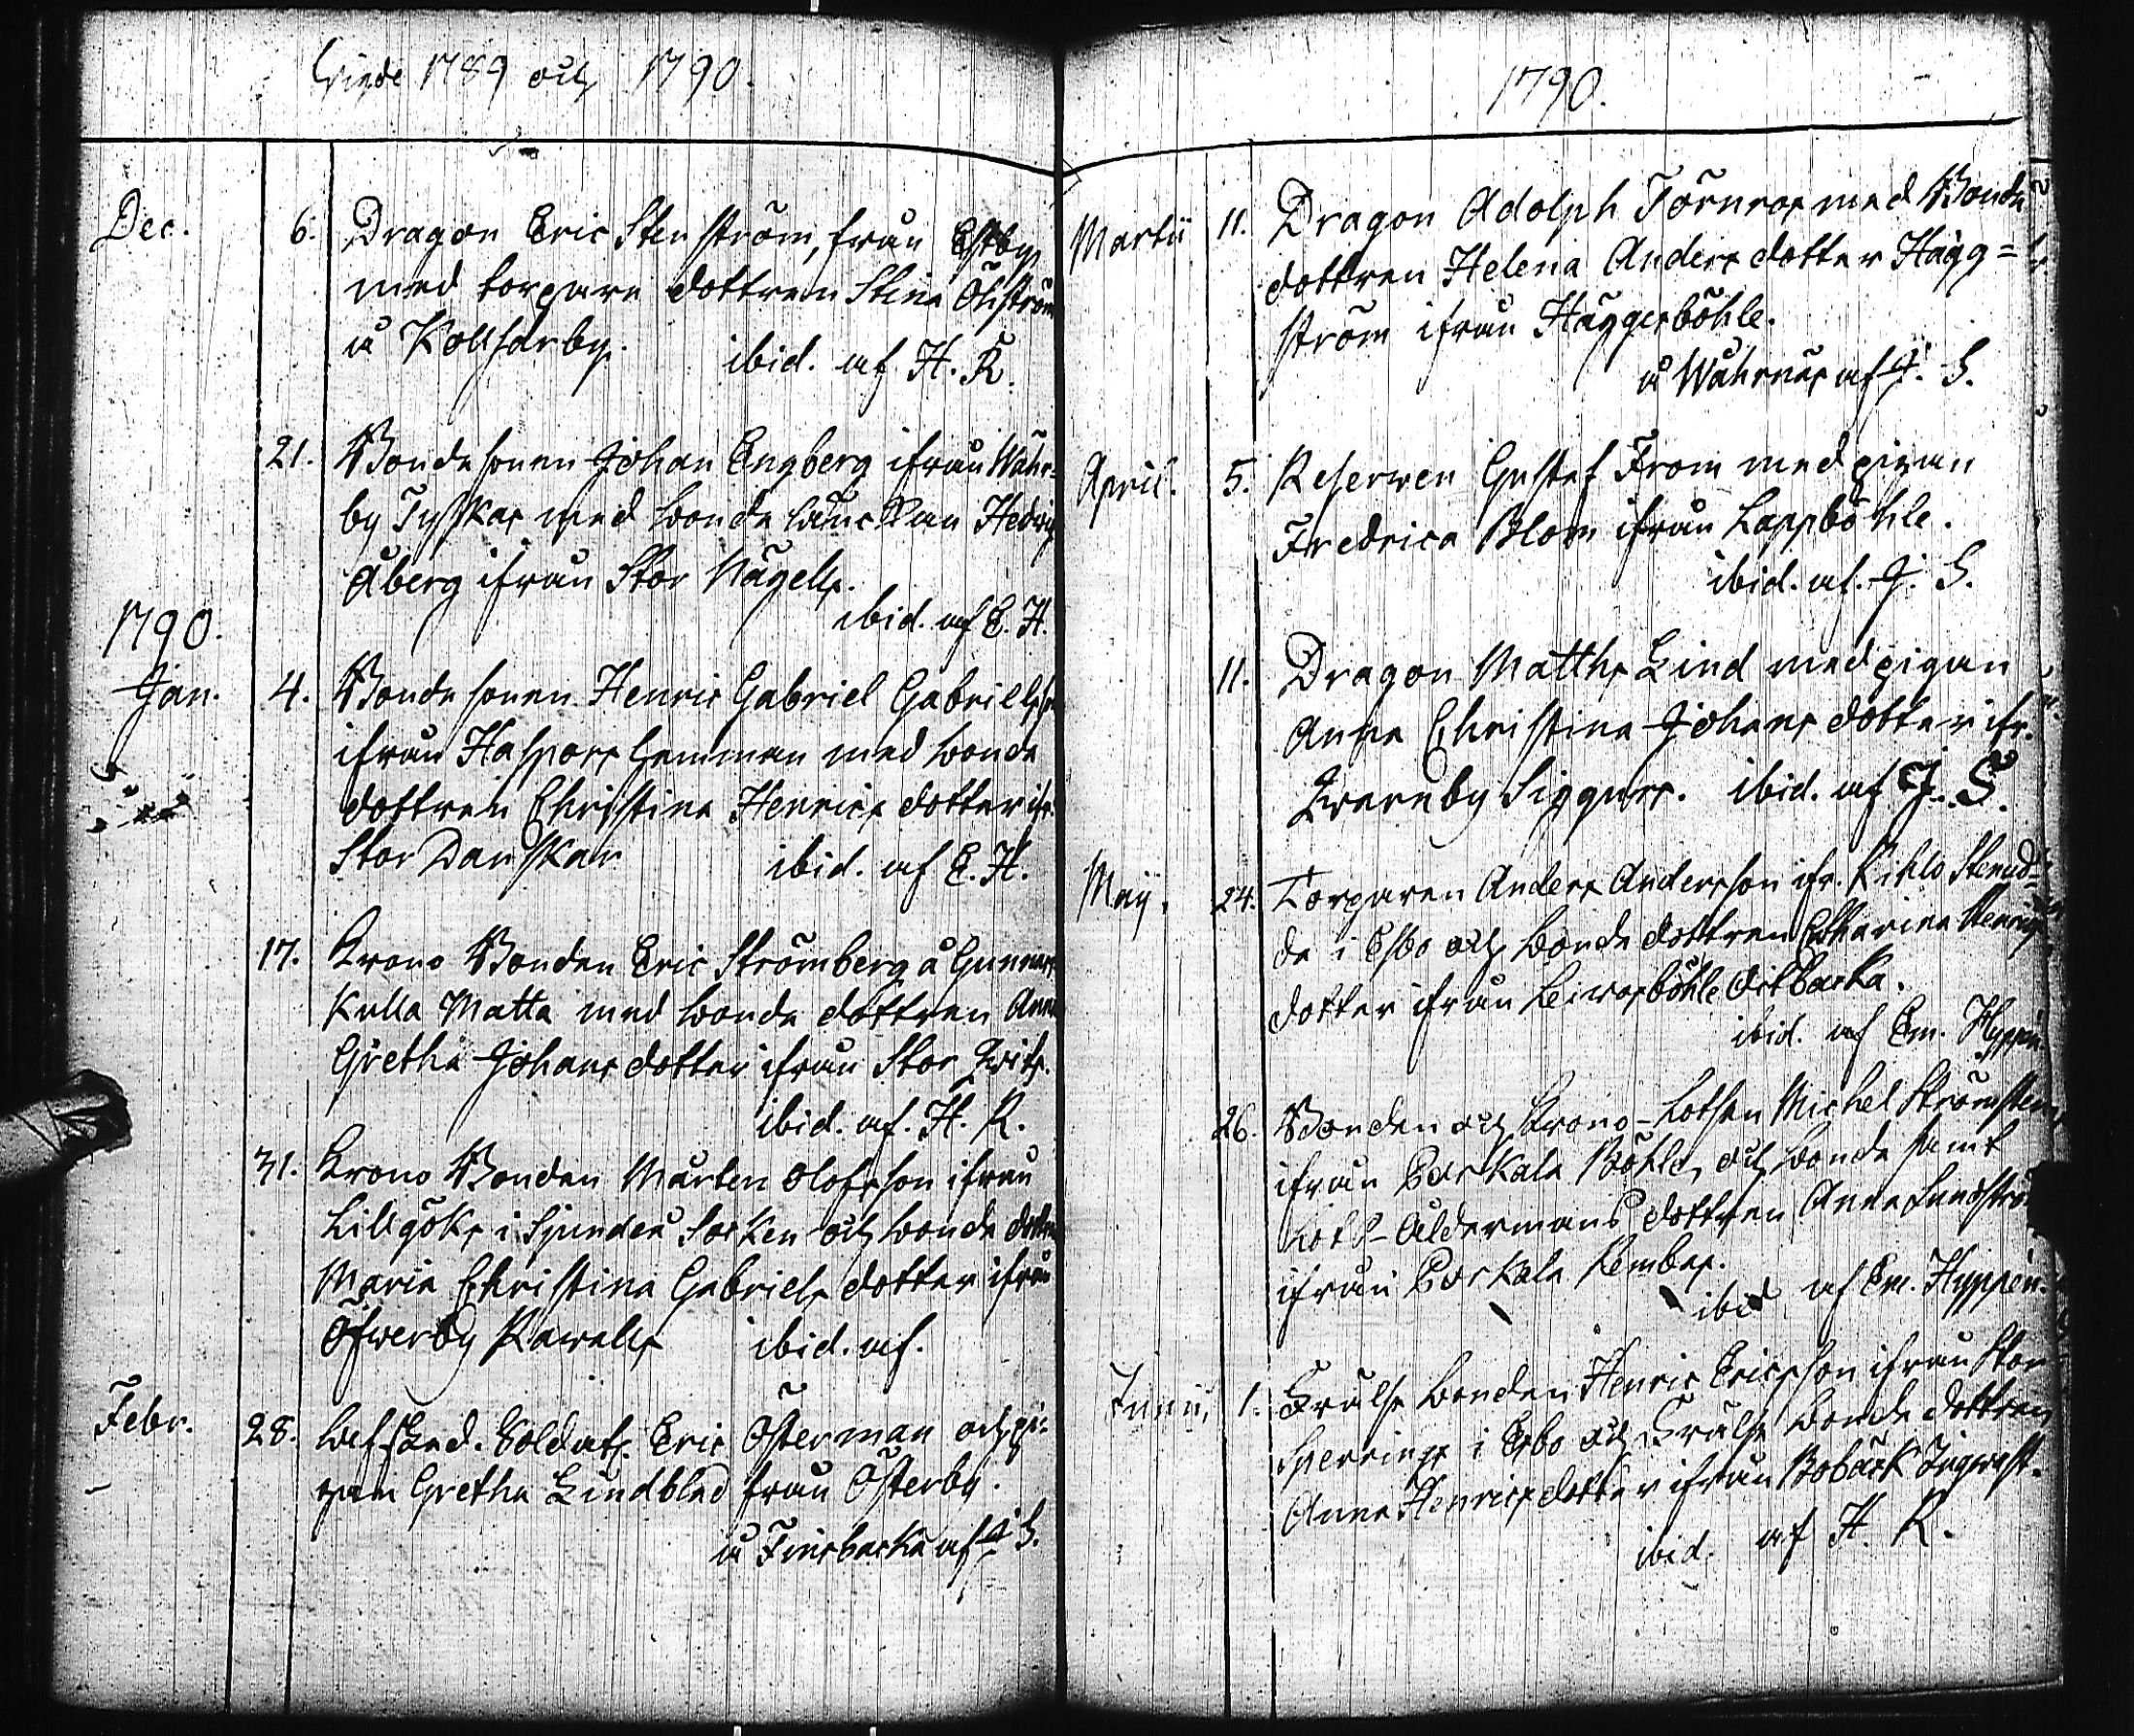 Wigde 1789 och 1790.
Dec. 6. Dragon Eric Stenström, från Estby
med torpare dottren Stina Öhström
å Kollsarby. ibid. af H. R.
21. Bondesonen Johan Engberg ifrån Wåhr-
by Tyskas med bonde Hedvig
Åberg ifrån Stor Nägells.
ibid. af E. H.
1790.
Jan. 4. Bondesonen Henric Gabriel
ifrån Haspors hemman med bonde
dottren Christina Henrics dotter ifr.
Stor Danskar ibid. af E. H.
17. Krono Bonden Eric Strömberg å Gunnars
Kulla Matta med bonde dottren Anna
Gretha Johans dotter ifrån Stor Kvits.
ibid. af. H. R.
31. Krono Bonden Mårten Olofsson ifrån
Lillgöks i Sjundeå Socken och bonde dottren
Maria Christina Gabriels dotter ifrån
Öfwerby Rawals ibid. af.
Febr. 28. Soldat. Eric Österman och pi-
gan Gretha Lindblad från Österby.
å Finsbacka af J. S.
1790.
Martii 11. Dragon Adolph Törnros med Bonde
dottren Helena Anders dotter Hägg=
ström ifrån Häggesböhle.
å Wåhrnäs af J. S.
April. 5. Reserwen Gustaf From med pigan
Fredrica Blom ifrån Lappböhle.
ibid. af. J. S.
11. Dragon Matths Lind med pigan
Anna Christina Johans dotter ifr.
Kvarnby Siggurs. ibid. af J. S.
Maij. 24. Torparen Anders Andersson ifr. Kihlo
da i Esbo och bonde dottren Catharina Henrics
dotter ifrån Leivosböhle Östbacka.
ibid. af Em. Hyppén.
26. Bonden och Krono-Lotsen Michel Strömsten
ifrån Porkala Böhle, och bonde samt
Lots-Åldermans dottren Anna Lundström
ifrån Porkala Rembes.
ibid. af Em. Hyppén.
Junii, 1. Frälse bonden Henric Ericsson ifrån Stor
Sperrings i Esbo och Frälse bonde dottren
Anna Henrics dotter ifrån Bobäck Ingvast.
ibid. af H. R.